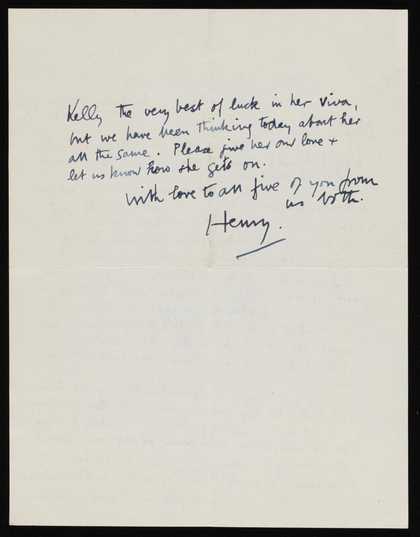 Kelly the very best of luck in her viva,
but we have been thinking today about her
all the same. Please give her our love +
let us know how she gets on.
With love to all five of you from
us both.
Henry.